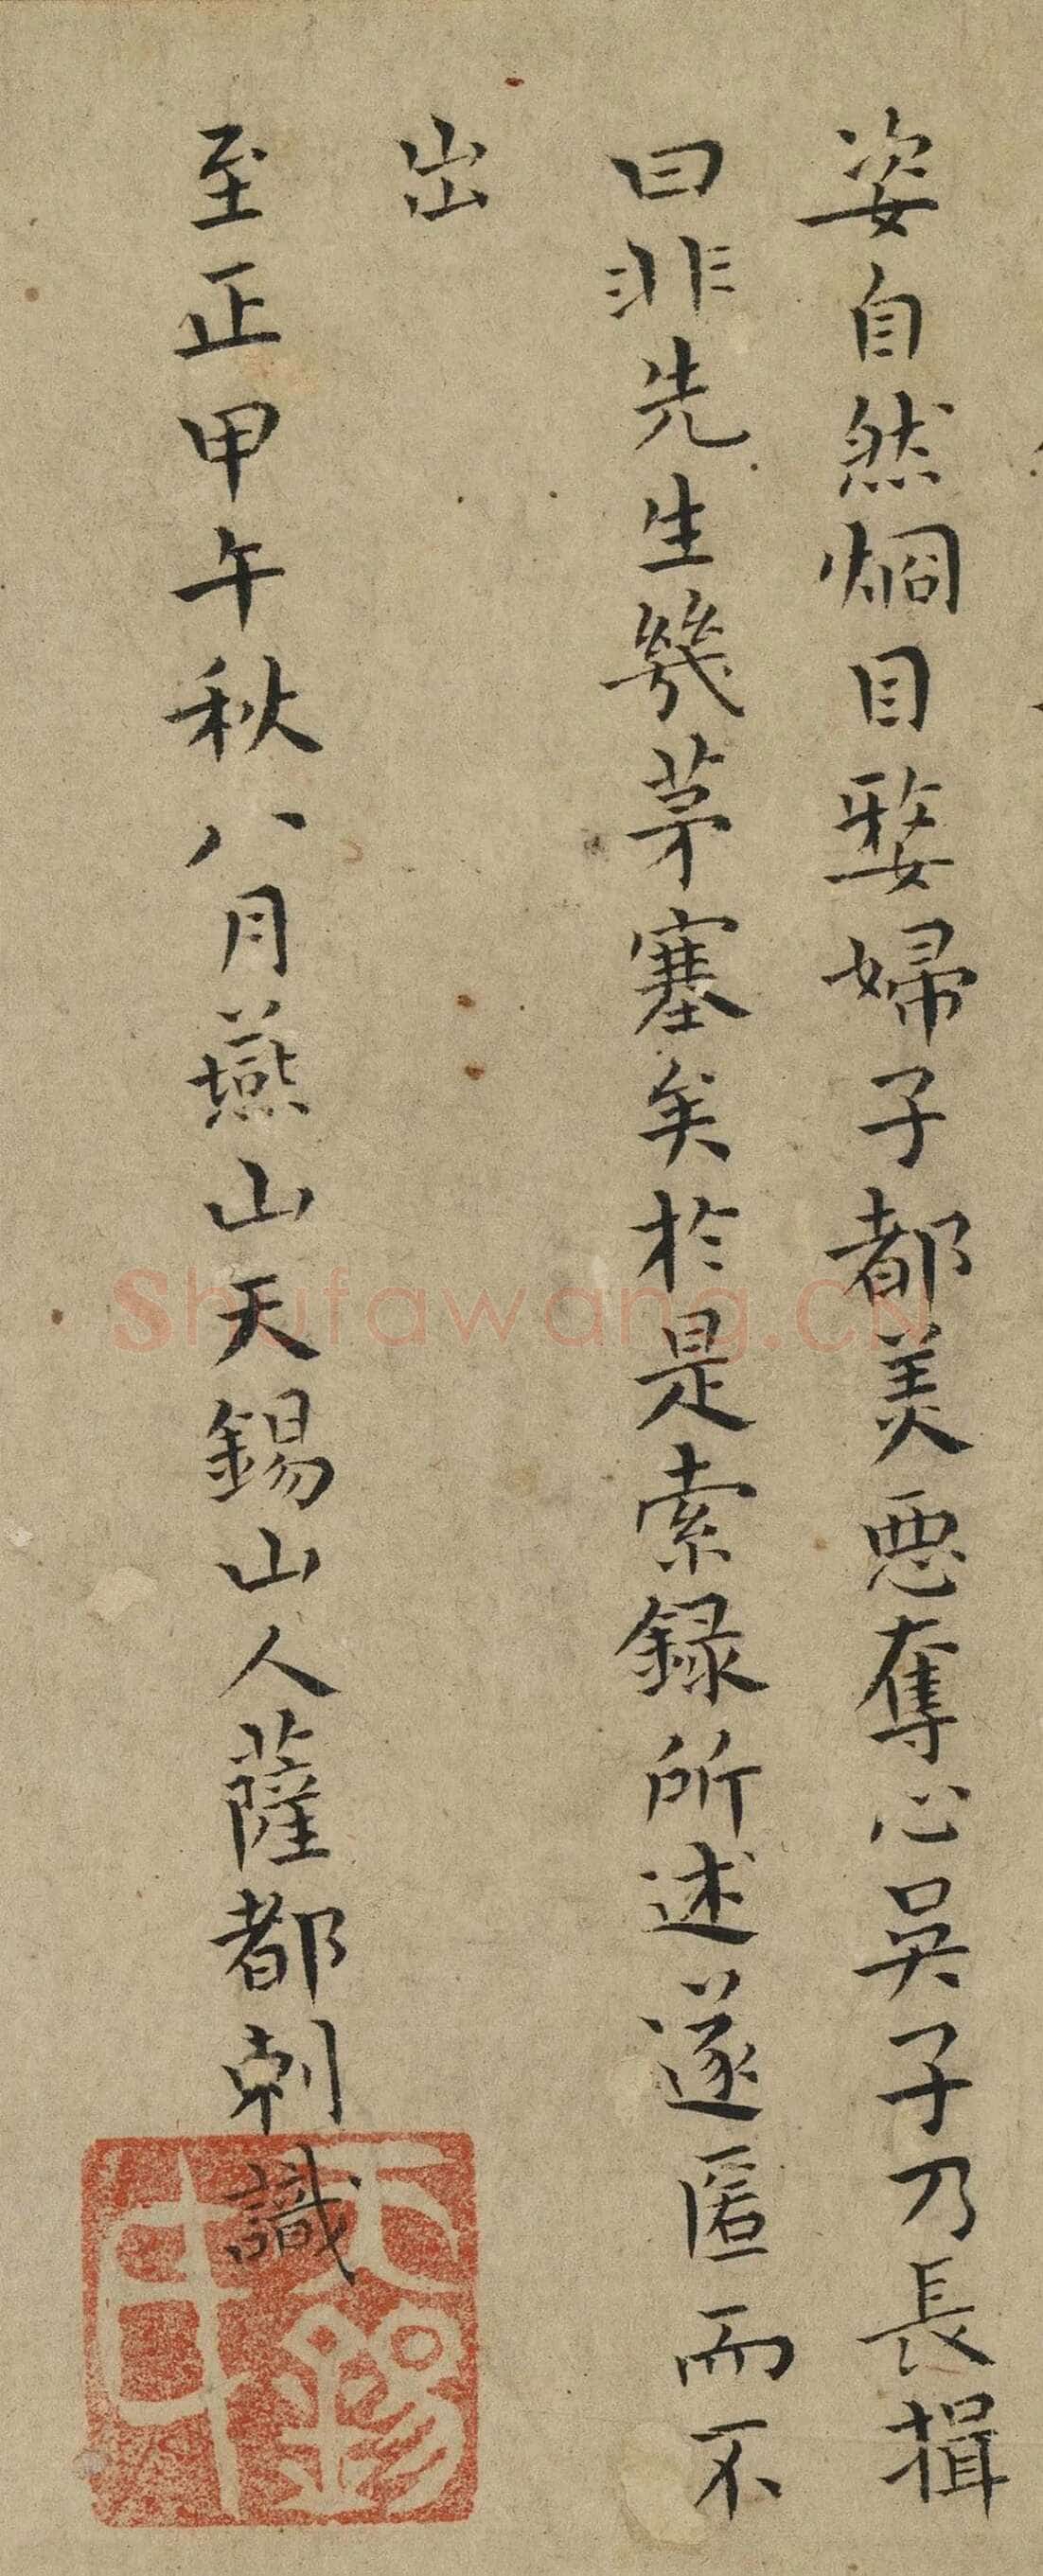 姿自然烱目婺婦子都美惡奪心吳子乃長揖
曰非先生幾茅塞矣於是索録所述遂匿而不
出
至正甲午秋八月燕山天錫山人薩都剌識
shufawang.CN